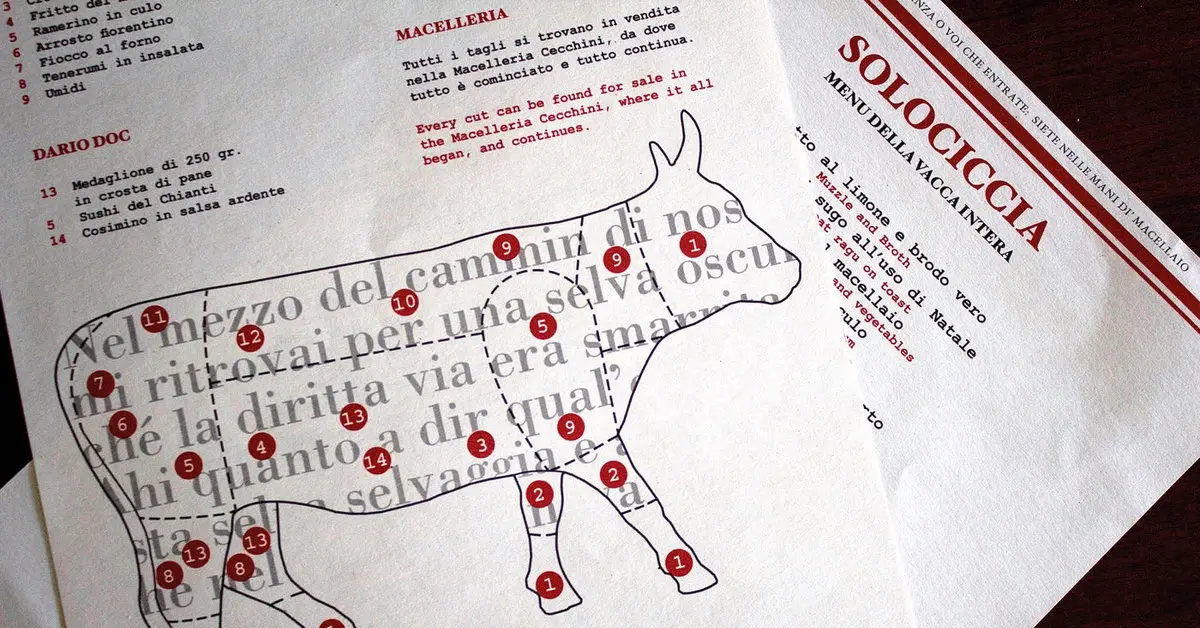 3
4 Fritto del
5 Ramerino in culo
6 Arrosto fiorentino
7 Fiocco al forno
8 Tenerumi in insalata
9 Umidi
DARIO DOC
13 Medaglione di 250 gr.
in crosta di pane
5 Sushi del Chianti
14 Cosimino in salsa ardente
MACELLERIA
Tutti i tagli si trovano in vendita
nella Macelleria Cecchini, da dove
tutto è cominciato e tutto continua.
Every cut can be found for sale in
the Macelleria Cecchini, where it all
began, and continues.
Nel mezzo del cammin di nos
mi ritrovai per una selva oscu
ché la diritta via era smarrita
Ahi quanto a dir qual'
sta sel selvaggia e
he nel
9
1
9
11
10
12
5
7
6
13
9
4
3
5
14
2
2
13
13
8
8
1
1
1
O VOI CHE ENTRATE: SIETE NELLE MANI DI' MACELLAIO
SOLOCICCIA
MENU DELLA VACCA INTERA
al limone e brodo vero
Muzzle and Broth
sugo all'uso di Natale
ragu on toast
macellaio
and vegetables